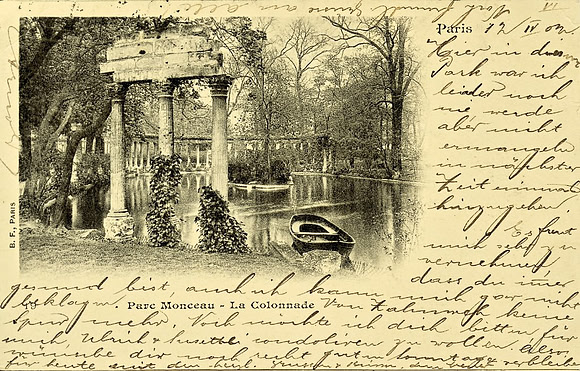 Paris 12/IV 02.
Hier in diesem
Park war ich
leider noch
nie werde
aber nicht
ermangeln
in nächster
Zeit einmal
hinzugehen.
Es freut
mich sehr zu
vernehmen
dass du
gesund bist, auch ich kann mich gar nicht
beklagen. Von Zahnweh keine
Spur mehr. Noch möchte ich dich bitten für
mich, Ulrich & kondoliren zu wollen. Also
wünsche dir noch recht guten Sonntag &
für heute seid den herzl. Grüssen & Küssen,
B. F., PARIS
Parc Monceau - La Colonnade